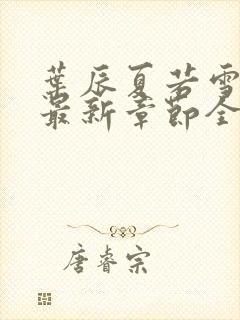 葉辰夏若雪
最新章節全
唐睿宗